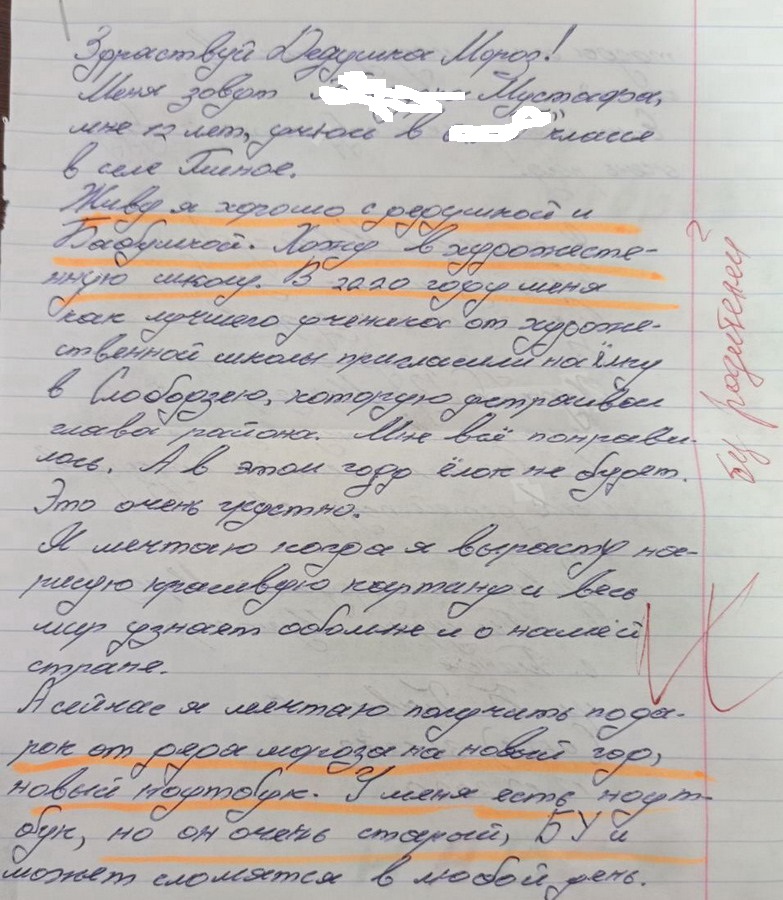 Здраствуй Дедушка Мороз!
Меня зовут Мустафа,
мне 12 лет, учюсь в классе
в селе Глиное.
Живу я хорошо с дедушкой и
Бабушкой. Хожу в художесте-
нную школу. В 2020 году меня
как лучшего ученика от художе-
ственной школы пригласили на ёлку
в Слободзею, которую устраивал
глава района. Мне всё понрави-
лось. А в этом году ёлок не будет.
Это очень грустно.
Я мечтаю когда я вырасту на-
рисую красивую картину и весь
мир узнает обо мне и о нашей
стране.
А сейчас я мечтаю получить пода-
рок от деда мороза на новый год,
новый ноутбук. У меня есть ноут-
бук, но он очень старый, БУ и
может сломятся в любой день.
бу родителей?